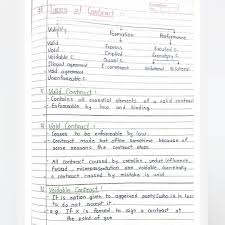 Types of Contract
Validity Formation Performance
Valid Express Executed C.
Void Implied Executory C.
Voidable C. Quasi C. Unilateral Bilateral
Illegal agreement E-commerce
Void agreement
Unenforceable C.
1) Valid Contract :
- Contains all essential elements of a valid contract
- Enforceable by law and binding.
2) Void Contract :
- Ceases to be enforceable by law.
- Contract made but after sometime because of
some reasons the contract stops
- All contract caused by coercion, undue influence,
Fraud, misrepresentation are voidable.
a contract caused by mistake is void.
3) Voidable Contract :
- It is option given to aggrieved party who is in loss
to do not accept it.
e.g. If X is forced to sign a contract at
the point of gun